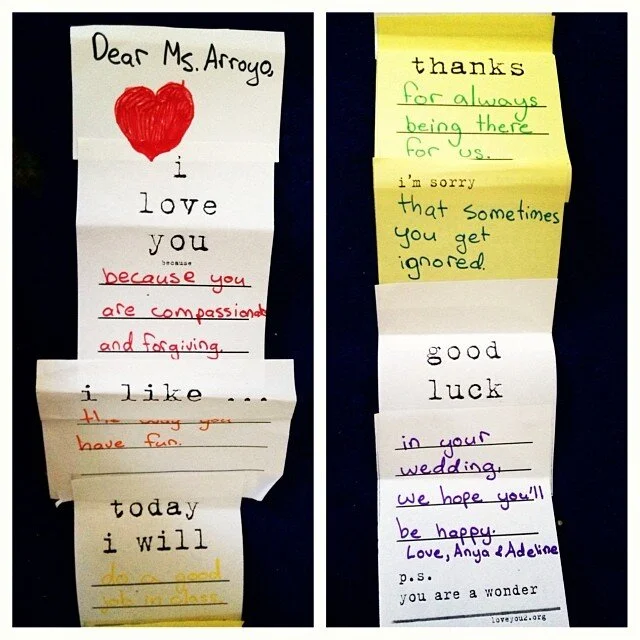 Dear Ms. Arroyo,
i
love
you
because
because you
are compassionate
and forgiving.
i like ...
the way you
have fun.
today
i will
do a good
job in class.
thanks
for always
being there
for us.
i'm sorry
that sometimes
you get
ignored.
good
luck
in your
wedding,
we hope you'll
be happy.
Love, Anya & Adeline
p.s.
you are a wonder
loveyou2.org